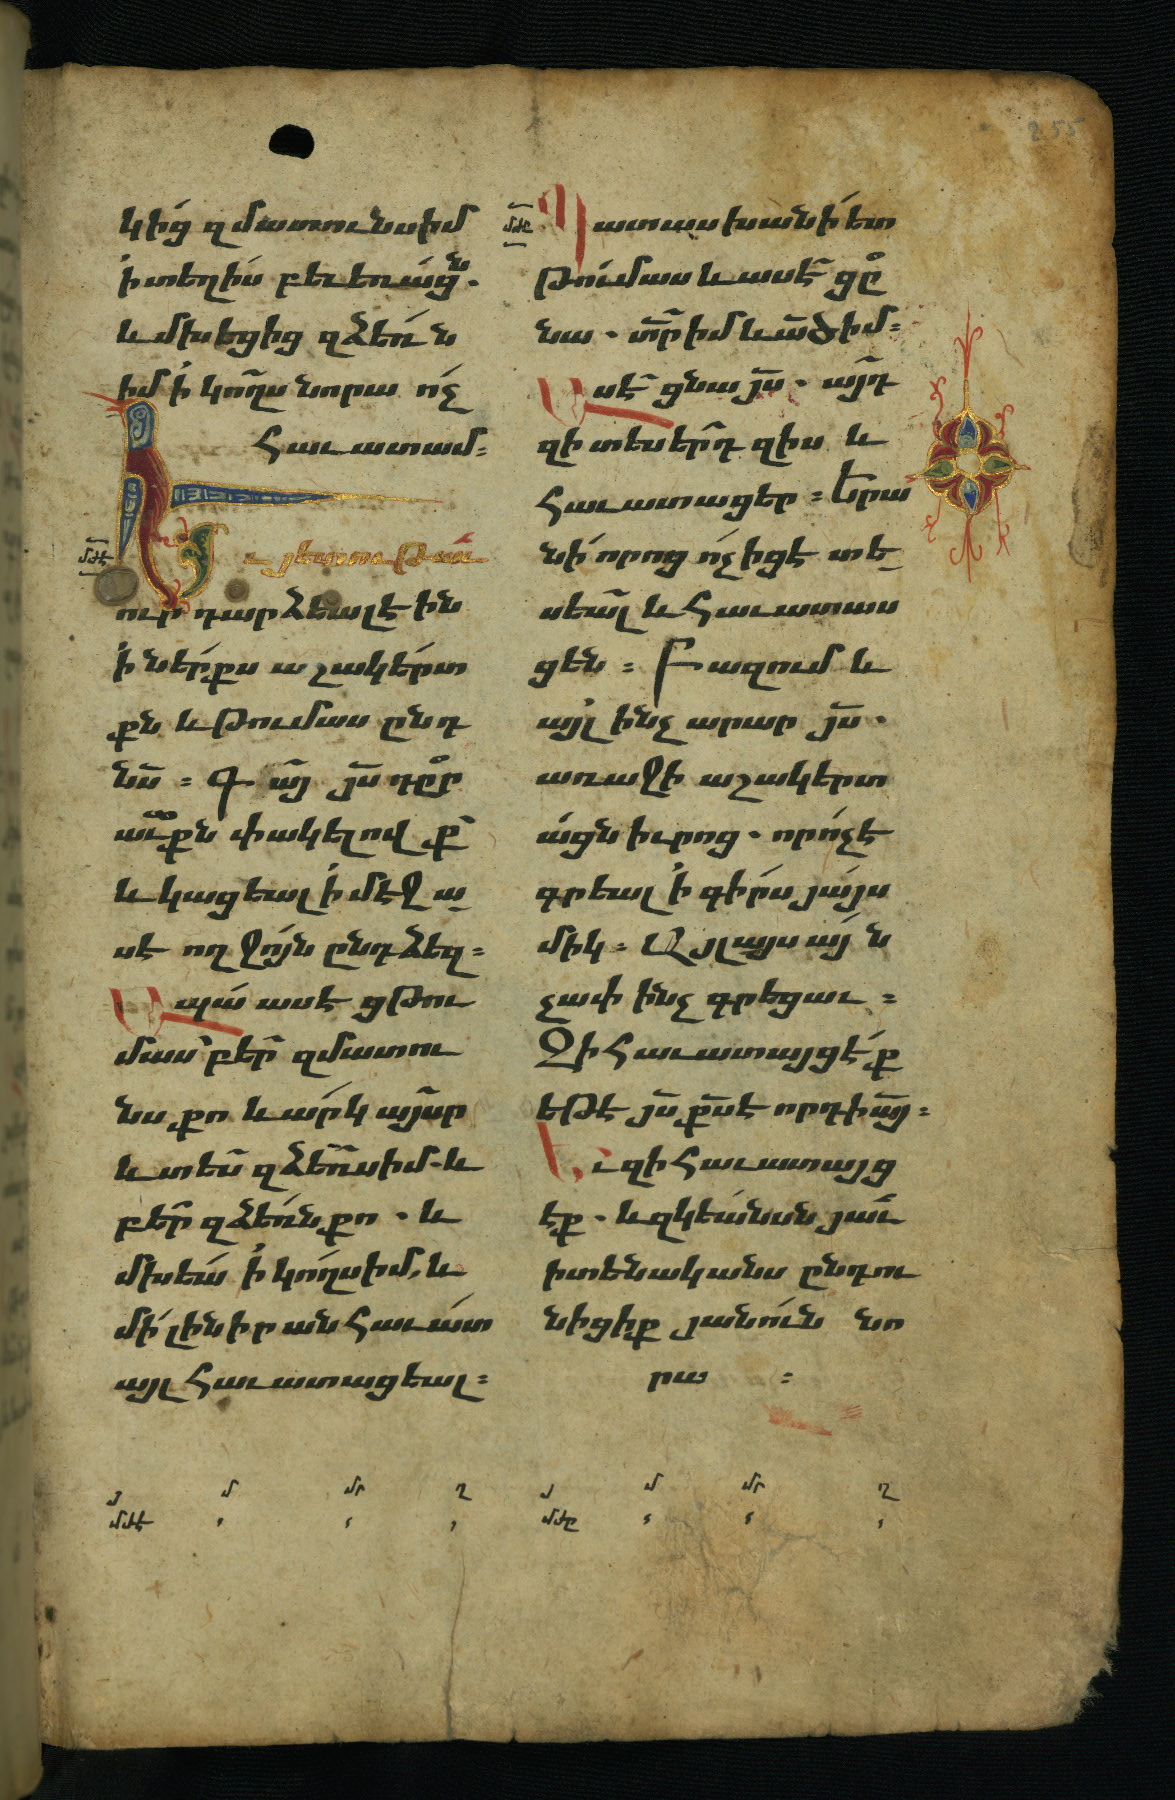 255
կից զմատունսիմ
ի տեղիս բևեռացն.
և մխեցից զձեռն
իմ ի կողս նորա ոչ
հաւատամ։
մժէ
Եւ յետ ութ աւ
ուր դարձեալ է ին
ի ներքս աշակերտ
քն և Թումաս ընդ
նս։ Գ այ յս դըր
աւքն փակելով ք
և կացեալ ի մէջ ա
սէ ողջոյն ընդ ձեզ։
Ապա ասէ ցԹու
մաս բեր զմատու
նս քո և արկ այսր
և տես զձեռսիմ. և
բեր զձեռն քո. և
մխեա ի կողսիմ, և
մի լինիր անհաւատ
այլ հաւատացեալ։
մժը
Պատասխանի ետ
Թումաս և ասէ ցը
նա. տր իմ և ած իմ։
Ասէ ցնա յս. այդ
զի տեսերդ զիս և
հաւատացեր։ Երա
նի որոց ոչ իցէ տե
սեալ և հաւատաս
ցեն։ Բազում և
այլ ինչ արար յս.
առաջի աշակերտ
ացն իւրոց. որ ոչ է
գրեալ ի գիրս յայս
միկ։ Այլ այս այն
չափ ինչ գրեցաւ։
Զի հաւատայցէք
եթէ յս քս է որդի այ։
Եւ զի հաւատայց
էք. և զկեանսն յաւ
իտենականս ընդու
նիցիք յանուն նո
րա։
յ մ մր ղ
մժէ
յ մ մր ղ
մժը